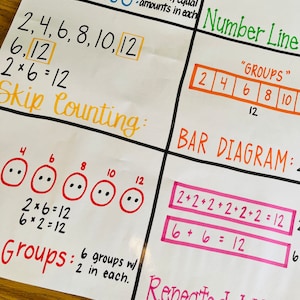 equal
amounts in each
2, 4, 6, 8, 10, 12
6, 12
2 × 6 = 12
Skip Counting:
Number Line
"GROUPS"
2 4 6 8 10
12
BAR DIAGRAM:
4 6 8 10 12
2 × 6 = 12
6 × 2 = 12
Groups: 6 groups w/
2 in each.
2+2+2+2+2+2 = 12
6 + 6 = 12
Repeated